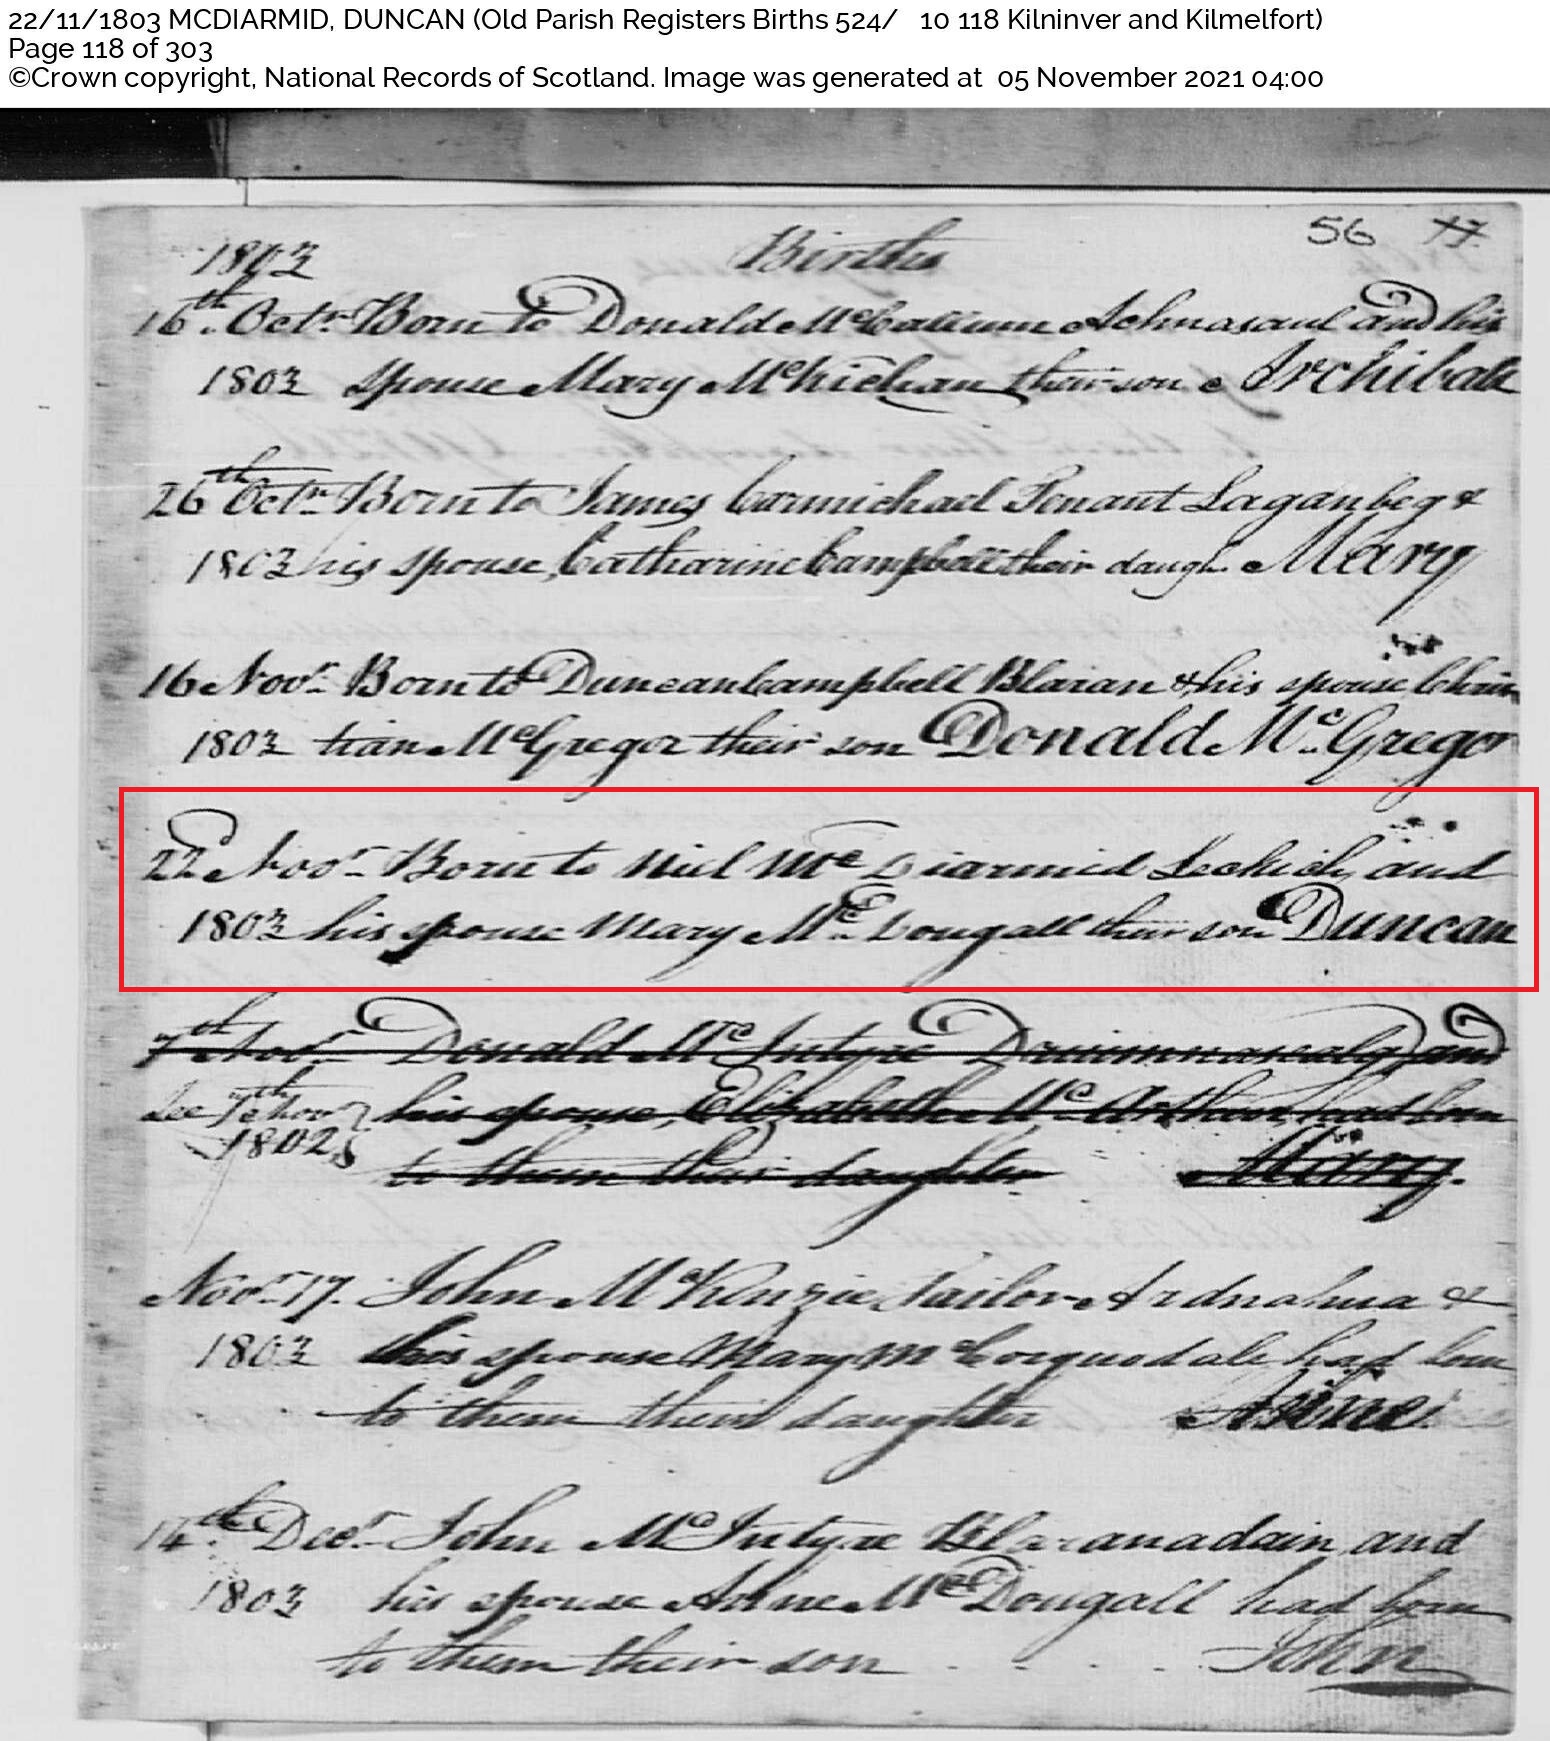 22/11/1803 MCDIARMID, DUNCAN (Old Parish Registers Births 524/ 10 118 Kilninver and Kilmelfort)
Page 118 of 303
©Crown copyright, National Records of Scotland. Image was generated at 05 November 2021 04:00
56 77
1803 Births
16th Octr Born to Donald McCallum Achnasaul and his
1803 spouse Mary McKichan their son Archibald
26th Octr Born to James Carmichael Tenant Laganbeg &
1803 his spouse Catharine Campbell their daugh. Mary
16 Novr Born to Duncan Campbell Blaran & his spouse Chris
1803 tian McGregor their son Donald McGregor
22d Novr Born to Niel McDiarmid Leckich, and
1803 his spouse Mary McDougall their son Duncan
7th Novr Donald McIntyre and
See 7th Novr his spouse, Elizabeth McArthur, had born
1802 to them their daughter Mary.
Novr 17. John McKenzie, tailor Ardnahua &
1803 his spouse Mary McCorquodale had born
to them their daughter Anne
14th Decr John McIntyre and
1803 his spouse Anne McDougall had born
to them their son . . . . John